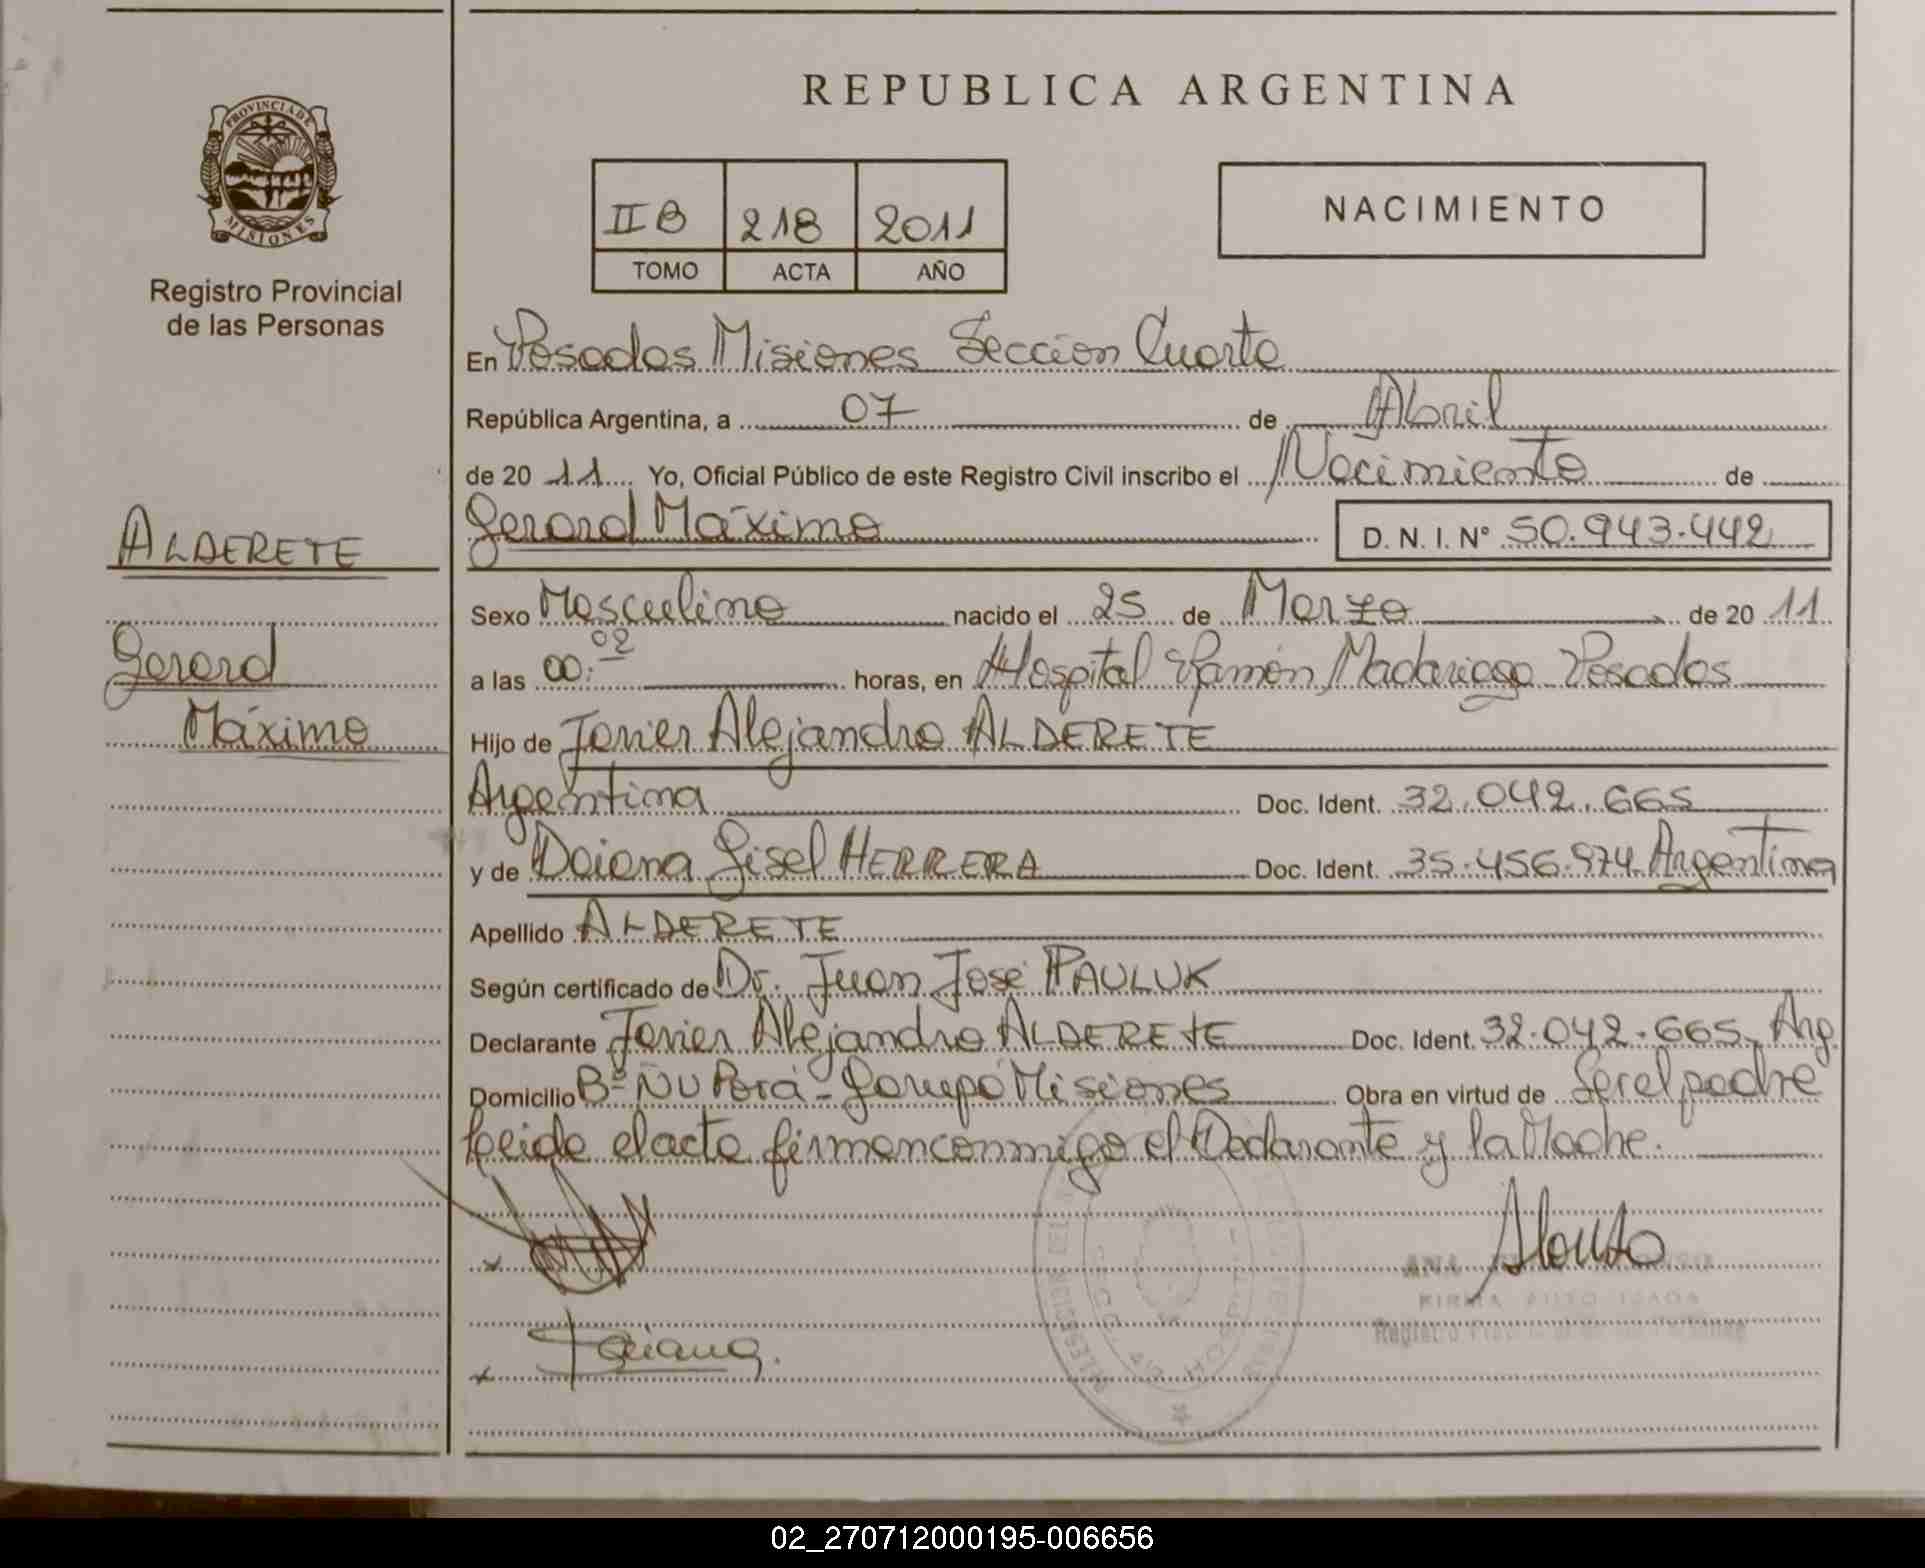 PROVINCIA DE
MISIONES
Registro Provincial
de las Personas
ALDERETE
Gerard
Máximo
REPUBLICA ARGENTINA
II B 218 2011
TOMO ACTA AÑO
NACIMIENTO
En Posadas Misiones Sección Cuarta
República Argentina, a 07 de Abril
de 20 11 Yo, Oficial Público de este Registro Civil inscribo el Nacimiento de
Gerard Máximo D. N. I. N° 50.943.442
Sexo Masculino nacido el 25 de Marzo de 20 11
a las 00:02 horas, en Hospital Ramón Madariaga Posadas
Hijo de Javier Alejandro ALDERETE
Argentina Doc. Ident. 32.042.665
y de Daiana Gisel HERRERA Doc. Ident. 35.456.974 Argentina
Apellido ALDERETE
Según certificado de Dr. Juan José PAULUK
Declarante Javier Alejandro ALDERETE Doc. Ident. 32.042.665 Arg.
Domicilio B° Ñu Porá - Garupá Misiones Obra en virtud de Ser el padre
Leida el acta firman conmigo el Declarante y la Madre.
Alonso
ANA
Daiana.
02_270712000195-006656